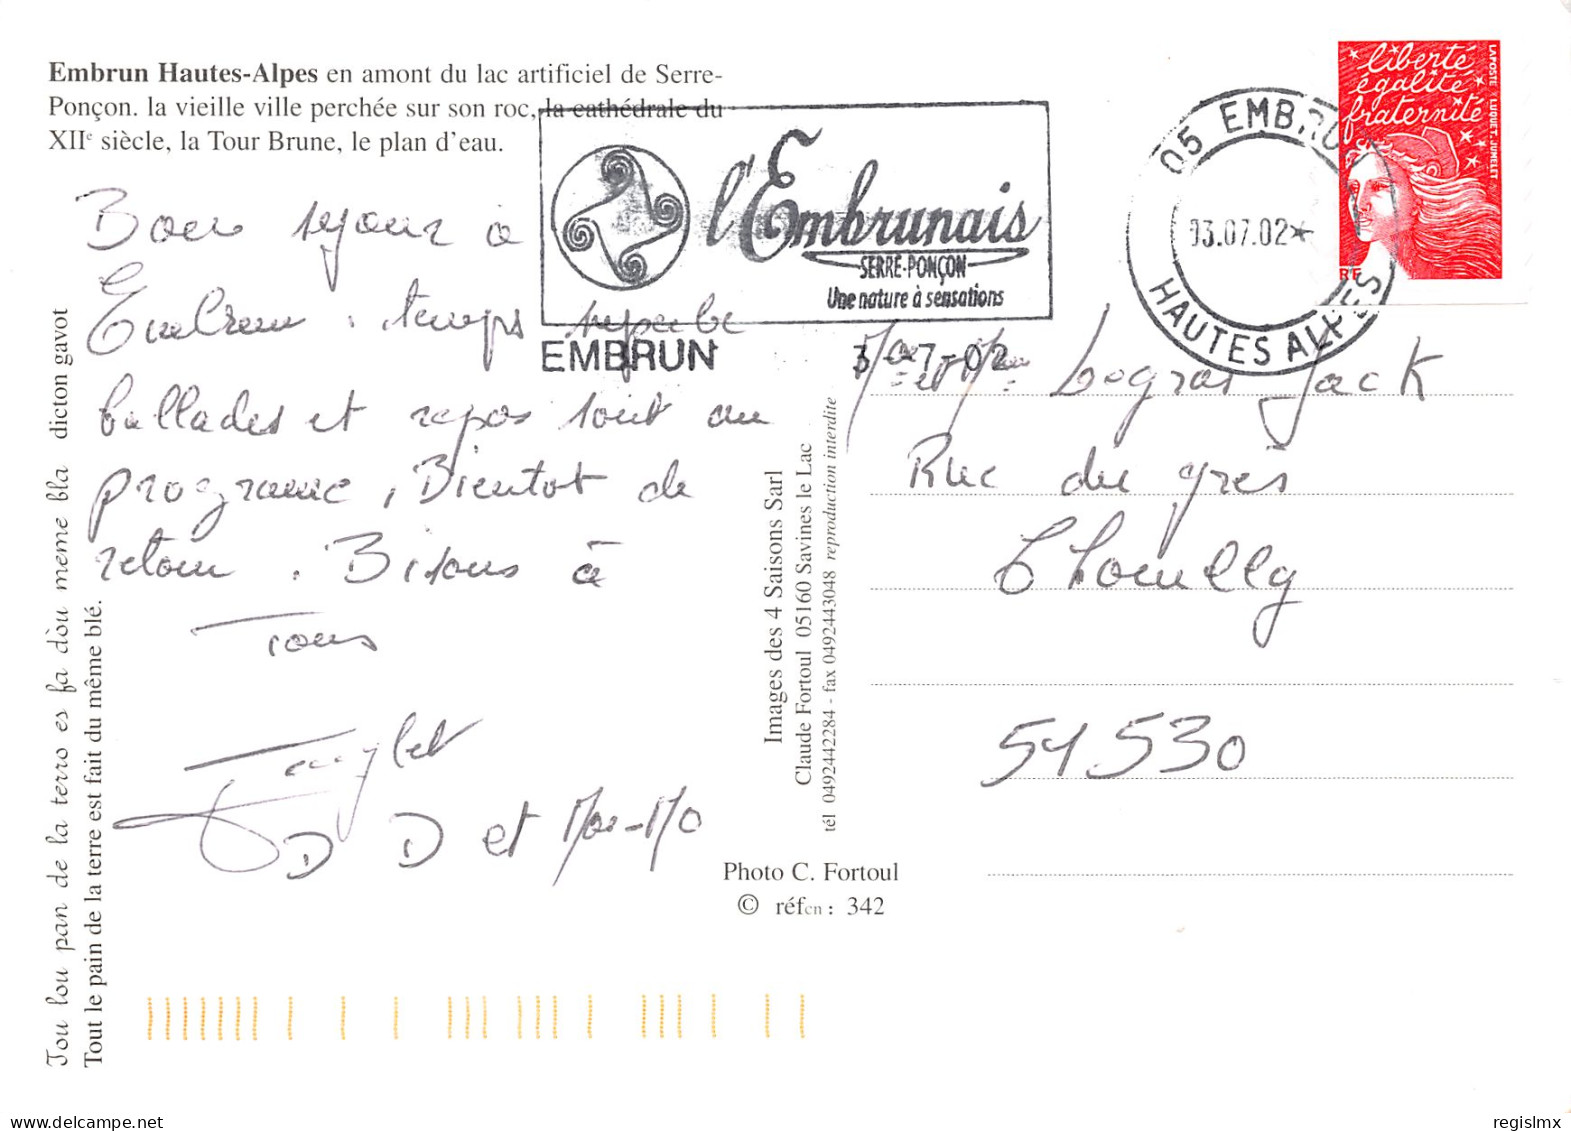 Embrun Hautes-Alpes en amont du lac artificiel de Serre-
Ponçon. la vieille ville perchée sur son roc, la cathédrale du
XIIe siècle, la Tour Brune, le plan d'eau.
Bon séjour à
Embrun : temps superbe
ballades et repos sont au
programme, Bientot de
retour. Bisous à
Tous
D D et
Tou lou pan de la terro es fa dòu meme bla dicton gavot
Tout le pain de la terre est fait du même blé.
l'Embrunais
SERRE-PONÇON
Une nature à sensations
EMBRUN
3 -7-02
05 EMBRUN
03.07.02*
HAUTES ALPES
liberté
égalité
fraternité
RF
LAPOSTE LUQUET-JUMELET
Images des 4 Saisons Sarl
Claude Fortoul 05160 Savines le Lac
tél 0492442284 - fax 0492443048 reproduction interdite
et Legros Jack
Rue du grès
Chouilly
51530
Photo C. Fortoul
© réfcn : 342
delcampe.net
regislmx